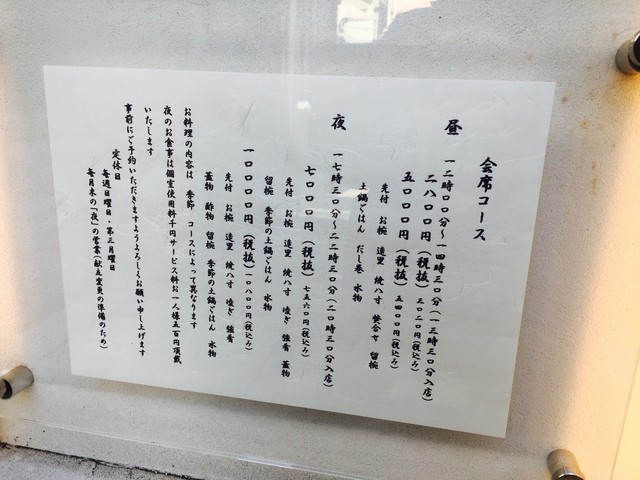 会席コース
昼　一二時〇〇分〜一四時三〇分(一三時三〇分入店)
二八〇〇円(税抜)三〇二〇円(税込み)
五〇〇〇円(税抜)五四〇〇円(税込み)
先付　お椀　造里　焼八寸　焚合せ　留椀
土鍋ごはん　だし巻　水物
夜　一七時三〇分〜二二時三〇分(二〇時三〇分入店)
七〇〇〇円(税抜)七五六〇円(税込み)
先付　お椀　造里　焼八寸　凌ぎ　強肴　蓋物
留椀　季節の土鍋ごはん　水物
一〇〇〇〇円(税抜)一〇八〇〇円(税込み)
先付　お椀　造里　焼八寸　凌ぎ　強肴
蓋物　酢物　留椀　季節の土鍋ごはん　水物
お料理の内容は　季節　コースによって異なります
夜のお食事は個室使用料千円サービス料お一人様五百円頂戴
いたします
事前にご予約いただきますようよろしくお願い申し上げます
定休日
毎週日曜日・第三月曜日
毎月末の「夜」の営業(献立変更の準備のため)